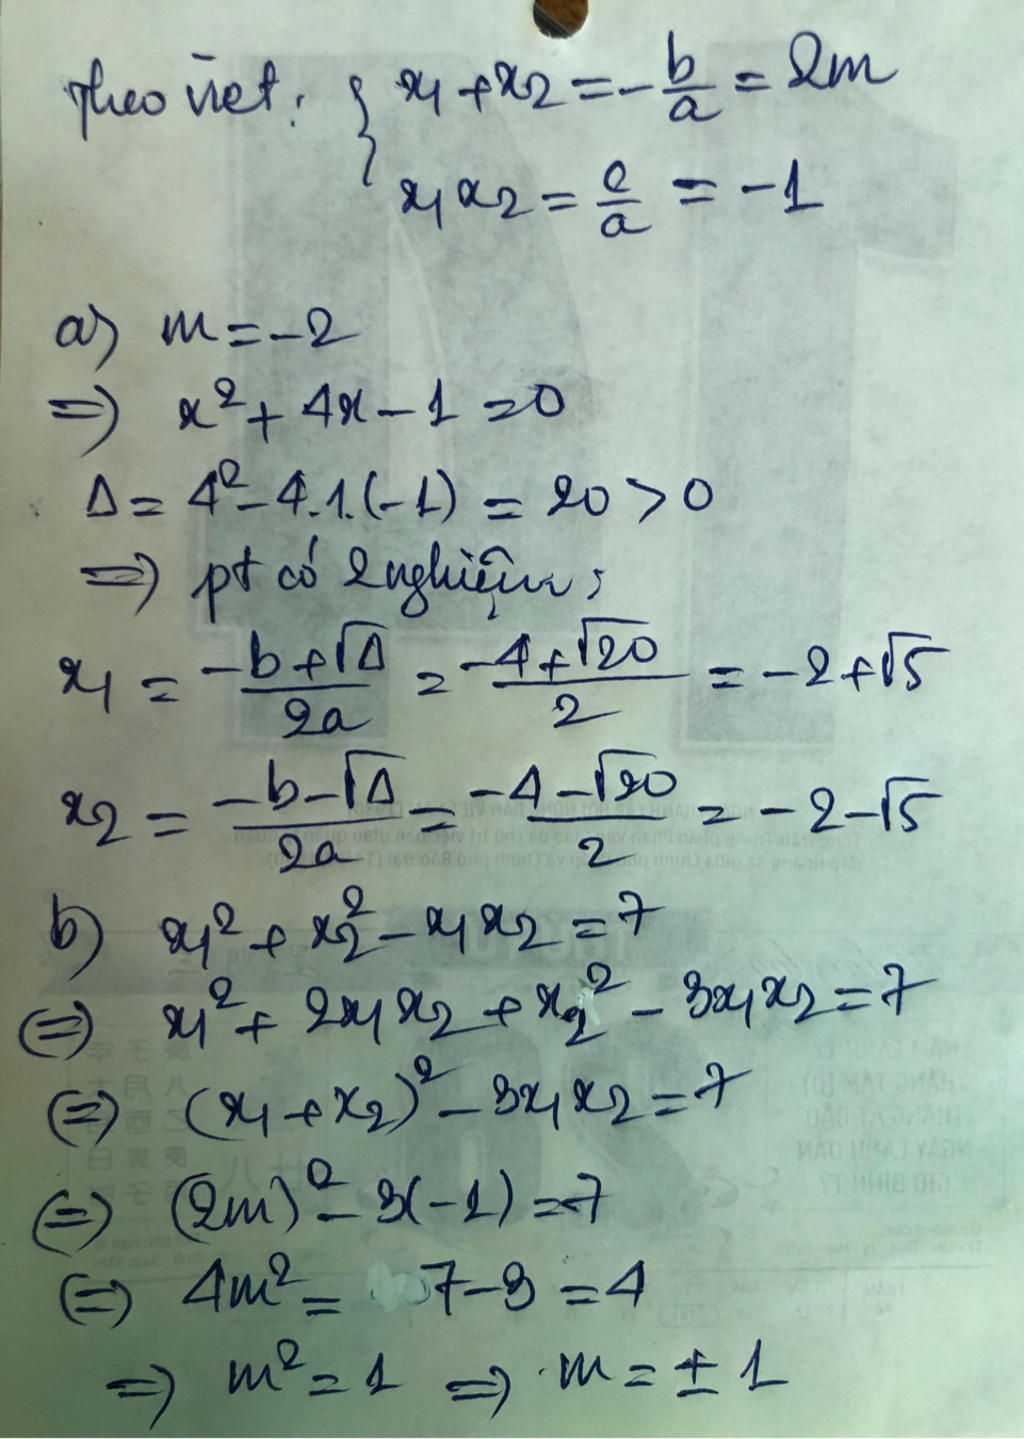 Theo Viet: { x₁ + x₂ = -b/a = 2m
x₁x₂ = c/a = -1
a) m = -2
=> x² + 4x - 1 = 0
Δ = 4² - 4.1.(-1) = 20 > 0
=> pt có 2 nghiệm:
x₁ = (-b + √Δ)/2a = (-4 + √20)/2 = -2 + √5
x₂ = (-b - √Δ)/2a = (-4 - √20)/2 = -2 - √5
b) x₁² + x₂² - x₁x₂ = 7
(=) x₁² + 2x₁x₂ + x₂² - 3x₁x₂ = 7
(=) (x₁ + x₂)² - 3x₁x₂ = 7
(=) (2m)² - 3(-1) = 7
(=) 4m² = 7 - 3 = 4
=> m² = 1 => m = ± 1